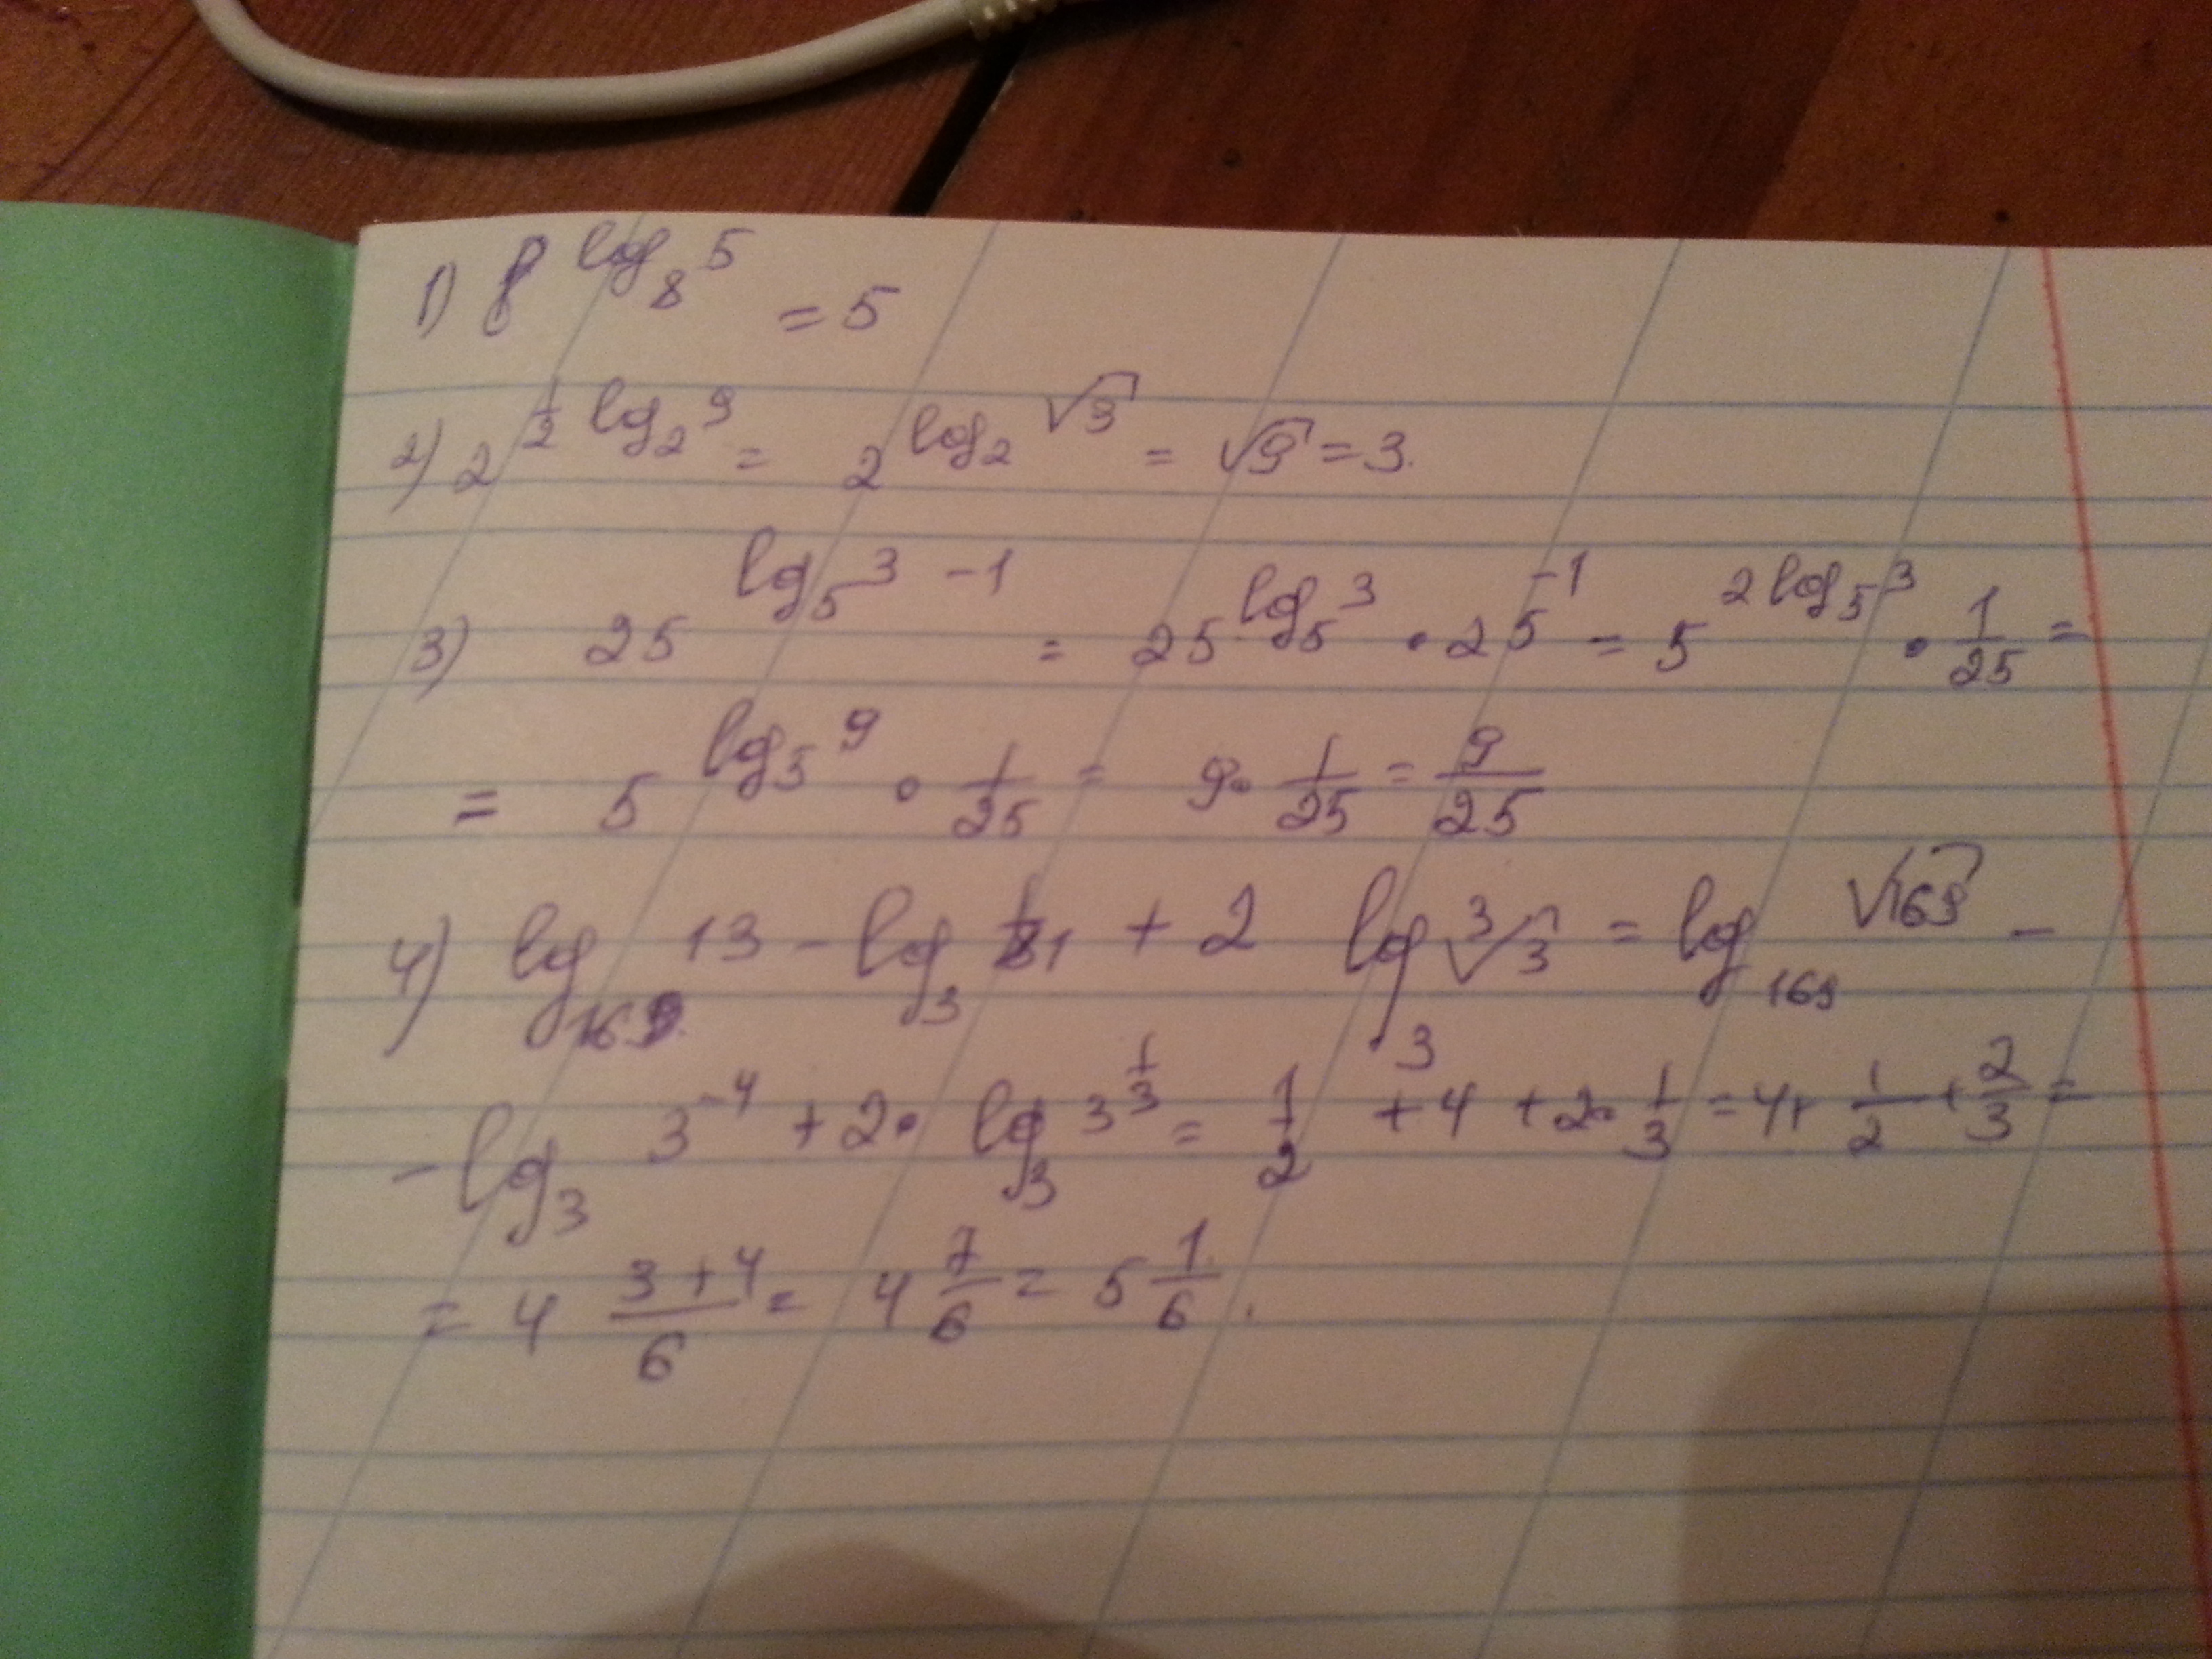 1) 8^{log_8 5} = 5
2) 2^{\frac{1}{2} log_2 9} = 2^{log_2 √9} = √9 = 3.
3) 25^{log_5 3 - 1} = 25^{log_5 3} • 25^{-1} = 5^{2 log_5 3} • \frac{1}{25} =
= 5^{log_5 9} • \frac{1}{25} = 9 • \frac{1}{25} = \frac{9}{25}
4) log_{169} 13 - log_3 \frac{1}{81} + 2 log_3 ∛3 = log_{169} √169 -
- log_3 3^{-4} + 2 • log_3 3^{\frac{1}{3}} = \frac{1}{2} + 4 + 2 • \frac{1}{3} = 4 + \frac{1}{2} + \frac{2}{3} =
= 4 \frac{3+4}{6} = 4 \frac{7}{6} = 5 \frac{1}{6}.